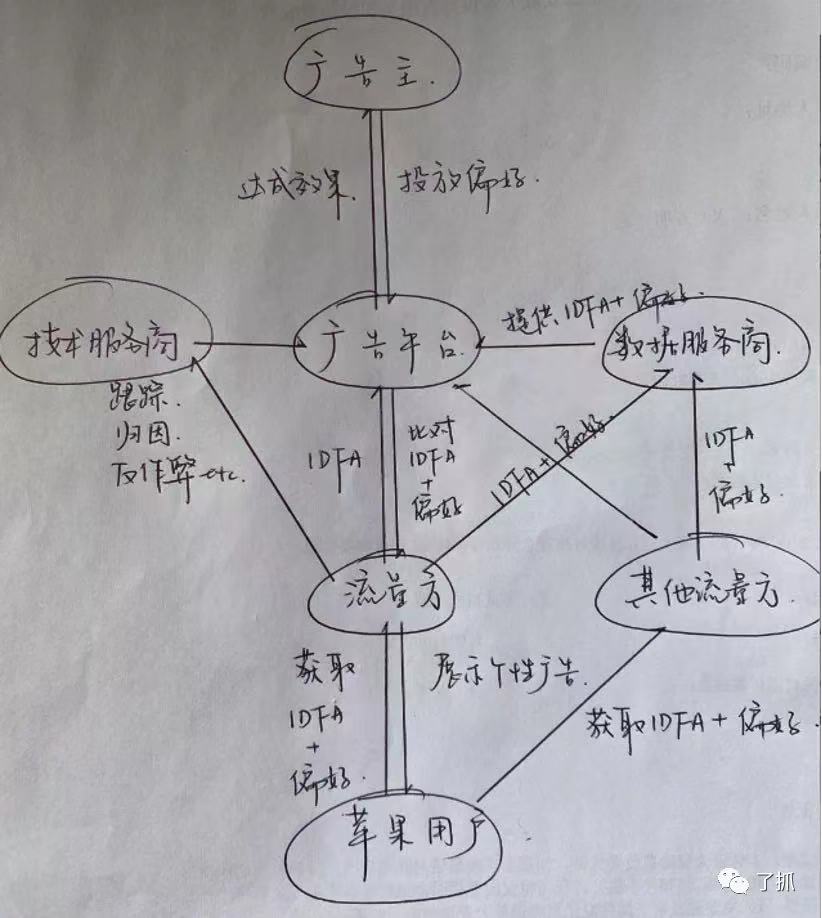 广告主.
达成效果.
投放偏好.
技术服务商
广告平台.
提供IDFA+偏好.
数据服务商.
跟踪.
归因.
反作弊etc.
IDFA
比对
IDFA
+
偏好
IDFA+偏好.
IDFA
+
偏好.
流量方
其他流量方.
获取
IDFA
+
偏好.
展示个性广告.
获取IDFA+偏好.
苹果用户.
了抓